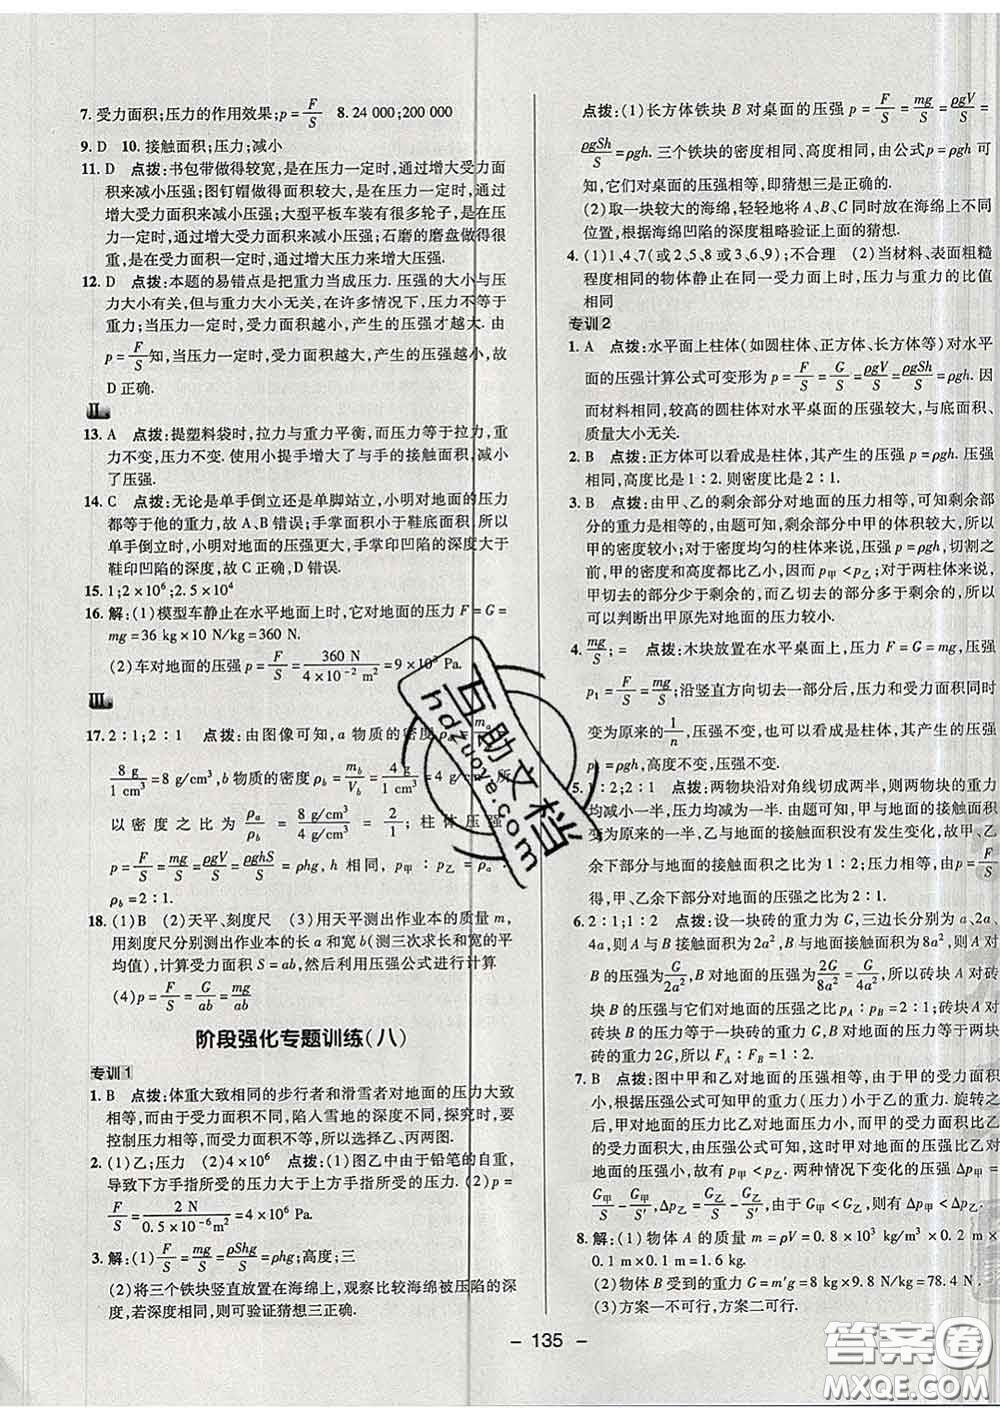 7. 受力面积;压力的作用效果;p=F/S  8. 24 000;200 000
9. D  10. 接触面积;压力;减小
11. D  点拨:书包带做得较宽,是在压力一定时,通过增大受力面
积来减小压强;图钉帽做得面积较大,是在压力一定时,通过
增大受力面积来减小压强;大型平板车装有很多轮子,是在压
力一定时,通过增大受力面积来减小压强;石磨的磨盘做得很
重,是在受力面积一定时,通过增大压力来增大压强.
12. D  点拨:本题的易错点是把重力当成压力. 压强的大小与压
力大小有关,但与重力大小无关,在许多情况下,压力不等于
重力;当压力一定时,受力面积越小,产生的压强才越大. 由
p=F/S知,当压力一定时,受力面积越大,产生的压强越小,故
D正确.
Ⅱ
13. A  点拨:提塑料袋时,拉力与重力平衡,而压力等于拉力,重
力不变,压力不变. 使用小提手增大了与手的接触面积,减小
了压强.
14. C  点拨:无论是单手倒立还是单脚站立,小明对地面的压力
都等于他的重力,故A、B错误;手掌面积小于鞋底面积,所以
单手倒立时,小明对地面的压强更大,手掌印凹陷的深度大于
鞋印凹陷的深度,故C正确,D错误.
15. 1;2×10⁶;2.5×10⁴
16. 解:(1)模型车静止在水平地面上时,它对地面的压力F=G=
mg=36 kg×10 N/kg=360 N.
(2)车对地面的压强p=F/S=360 N/4×10⁻² m²=9×10³ Pa.
Ⅲ
17. 2∶1;2∶1  点拨:由图像可知,a物质的密度ρa=ma
8 g/1 cm³=8 g/cm³,b物质的密度ρb=mb/Vb=4 g/1 cm³=4 g/cm³,所
以密度之比为ρa/ρb=8 g/cm³/4 g/cm³=2/1;柱体压强
p=F/S=mg/S=ρgV/S=ρghS/S=ρhg,h相同,p甲∶p乙=ρa∶
ρb=2∶1.
18. (1)B  (2)天平、刻度尺  (3)用天平测出作业本的质量m,
用刻度尺分别测出作业本的长a和宽b(测三次求长和宽的平
均值),计算受力面积S=ab,然后利用压强公式进行计算
(4)p=F/S=G/ab=mg/ab
阶段强化专题训练(八)
专训1
1. B  点拨:体重大致相同的步行者和滑雪者对地面的压力大致
相等,而由于受力面积不同,陷入雪地的深度不同,探究时,要
控制压力相等,而受力面积不等,所以选择乙、丙两图.
2. (1)乙;压力  (2)4×10⁶  点拨:(1)图乙中由于铅笔的自重,
导致下方手指所受的压力大于上方手指所受的压力. (2)p=
F/S=2 N/0.5×10⁻⁶m²=4×10⁶ Pa.
3. 解:(1)F/S=mg/S=ρShg/S=ρhg;高度;三
(2)将三个铁块竖直放置在海绵上,观察比较海绵被压陷的深
度,若深度相同,则可验证猜想三正确.
点拨:(1)长方体铁块B对桌面的压强p=F/S=mg/S=ρgV/S=
ρgSh/S=ρgh. 三个铁块的密度相同、高度相同,由公式p=ρgh可
知,它们对桌面的压强相等,即猜想三是正确的.
(2)取一块较大的海绵,轻轻地将A、B、C同时放在海绵上不同
位置,根据海绵凹陷的深度粗略验证上面的猜想.
4. (1)1,4,7(或2,5,8或3,6,9);不合理  (2)当材料、表面粗糙
程度相同的物体静止在同一受力面上时,压力与重力的比值
相同
专训2
1. A  点拨:水平面上柱体(如圆柱体、正方体、长方体等)对水平
面的压强计算公式可变形为p=F/S=G/S=ρgV/S=ρgSh/S=ρgh. 因
而材料相同,较高的圆柱体对水平桌面的压强较大,与底面积、
质量大小无关.
2. B  点拨:正方体可以看成是柱体,其产生的压强p=ρgh. 压强
相同,高度比是1∶2. 则密度比是2∶1.
3. B  点拨:由甲、乙的剩余部分对地面的压力相等,可知剩余部
分的重力是相等的,由题可知,剩余部分中甲的体积较大,所以
甲的密度较小;对于密度均匀的柱体来说,压强p=ρgh,切割之
前,甲的高度和密度都比乙小,因此p甲<p乙;对于两柱体来说,
甲切去的部分少于剩余的,而乙切去的部分多于剩余的,所以
可判断出甲原先对地面的压力较小.
4. mg/S;=  点拨:木块放置在水平桌面上,压力F=G=mg,压强
p₁=F/S=mg/S;沿竖直方向切去一部分后,压力和受力面积同时
变为原来的1/n,压强不变,也可以看成是柱体,其产生的压强
p=ρgh,高度不变,压强不变.
5. 1∶2;2∶1  点拨:两物块沿对角线切成两半,则两物块的重力
均减小一半,压力均减为一半. 甲与地面的接触面积
变为原来的一半,乙与地面的接触面积没有发生变化,故甲、乙
余下部分与地面的接触面积之比为1∶2;压力相等,由p=F/S
得,甲、乙余下部分对地面的压强之比为2∶1.
6. 2∶1;1∶2  点拨:设一块砖的重力为G,三边长分别为a、2a、
4a,则A与B接触面积为2a²,B与地面接触面积为8a²,A对
B的压强为G/2a²,B对地面的压强为2G/8a²=G/4a²,所以砖块A对砖
块B的压强与它们对地面的压强之比pA∶pB=2∶1;砖块A对
砖块B的压力等于一块砖的重力G,B对地面的压力等于两块砖的
重力2G,所以FA∶FB=1∶2.
7. B  点拨:图中甲和乙对地面的压强相等,由于甲的受力面积
小,根据压强公式可知甲的重力(压力)小于乙的重力. 旋转之
后,甲对地面的压力比乙对地面压力小,而甲的受力面积比乙
的受力面积大,由压强公式可知,这时甲对地面的压强比乙对
地面的压强小,故p甲<p乙. 两种情况下变化的压强Δp甲=
G甲/S−G甲/S′,Δp乙=G乙/S−G乙/S′,由于G甲<G乙,则有Δp甲<Δp乙.
8. 解:(1)物体A的质量m=ρV=0.8×10³ kg/m³×0.2 m
×0.1 m×0.1 m=1.6 kg.
(2)物体B受到的重力G=m′g=8 kg×9.8 N/kg=78.4 N.
(3)方案一不可行,方案二可行.
- 135 -
互助文档
hdzuoye.com
答案圈
MXQE.COM